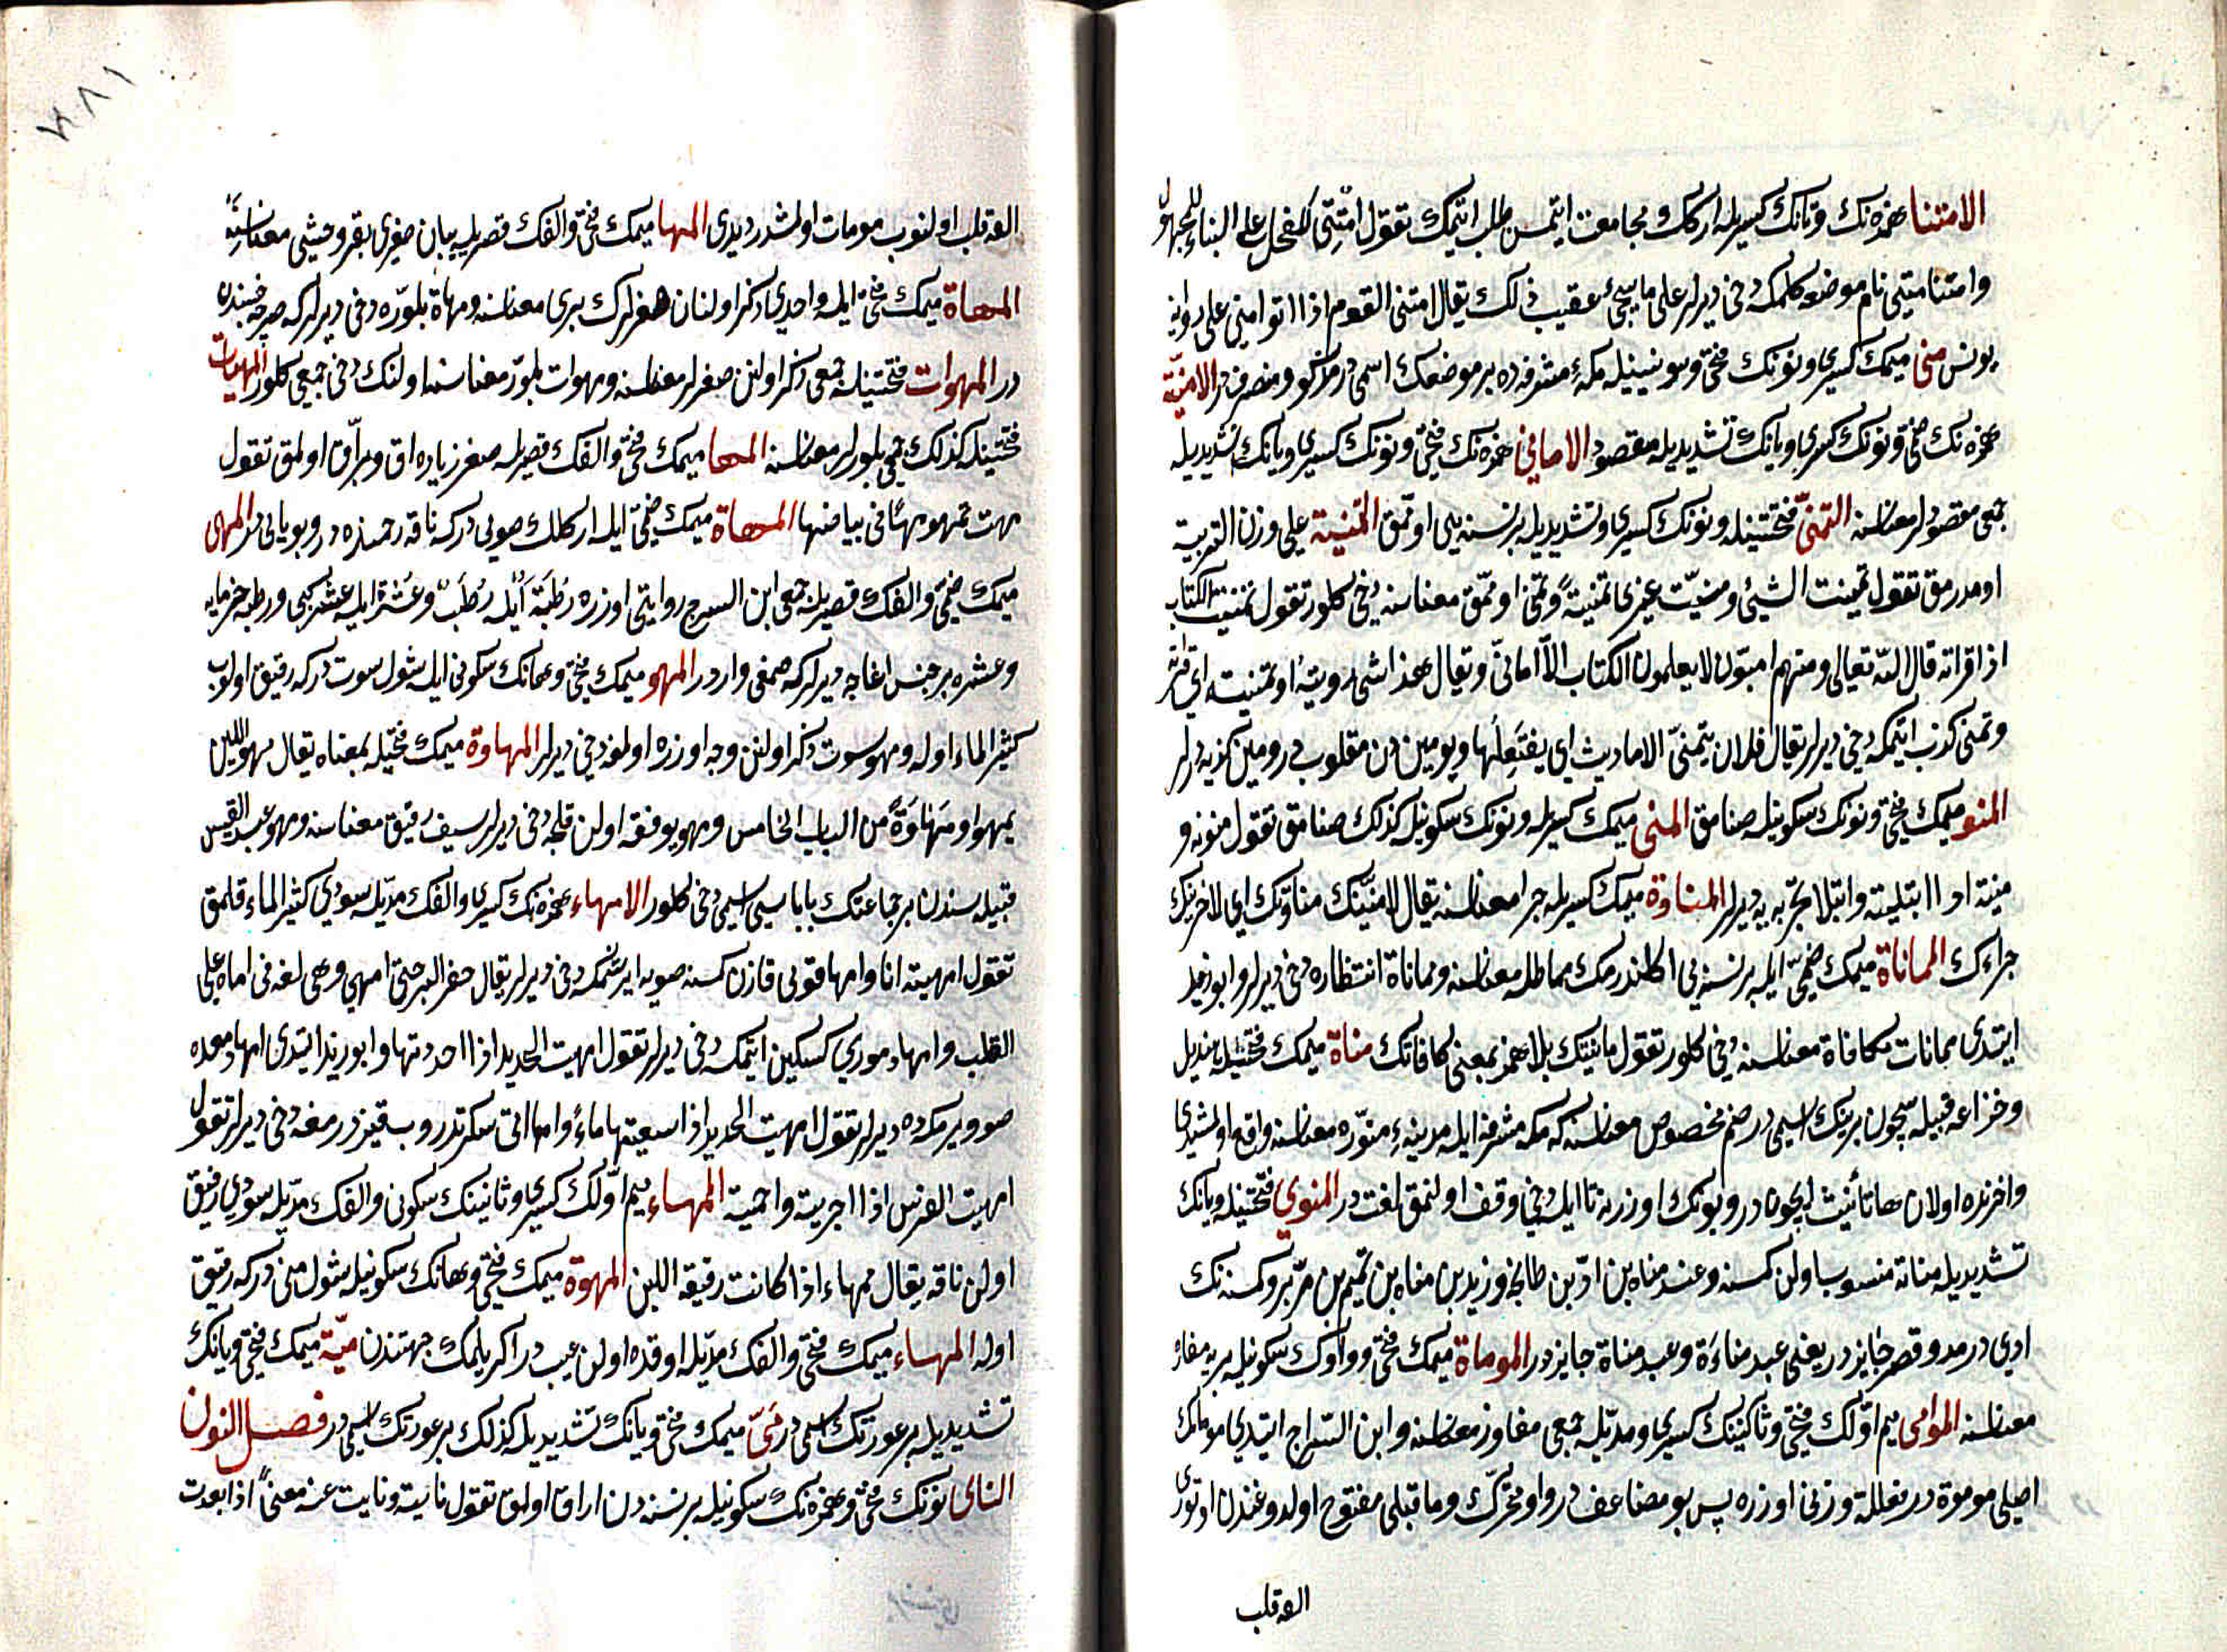 الامتنا همزه نك وتانك كسريله اركك ومجامعت ايتمسن طلب ايتمك تقول امتنى للفحل على البناء للمجهول
وامتنا متنى نام موضعه كلمكه دخى ديرلر على ما يجئ عقيب ذلك يقال امتنى القوم اذا اتوا منى على رواية
يونس منى ميمك كسرى ونونك فتحى وسونينيله مكهٔ مشرفه ده بر موضعك اسمى در مذكر ومنصرفدر الامنيّة
همزه نك ضمى ونونك كسرى ويانك تشديديله مقصود الامانى همزه نك فتحى ونونك كسرى ويانك تشديديله
جمعى مقصودلر معناسنه التمنّى فتحتينله ونونك كسرى وتشديديله برنسنه يى اوممق التمنية على وزن التربية
اومدرمق تقول تمنيت الشئ ومنيت غيرى تمنيةً وتمنى اوقمق معناسنه دخى كلور تقول تمنيت الكتاب
اذا قراته قال اللّه تعالى ومنهم اميّون لا يعلمون الكتاب الّا امانىّ ويقال هذا شئ رويته او تمنيته اى
وتمنى كذب ايتمكه دخى ديرلر يقال فلان يتمنّى الاحاديث اى يفتعلها وبو مين دن مقلوب در ومين كذبه ديرلر
المنو ميمك فتحى ونونك سكونيله صنامق المنى ميمك كسريله ونونك سكونيله كذلك صنامق تقول منونه و
منيته اذا ابتليته وابتلا تجربه يه ديرلر المناوة ميمك كسريله جزا معناسنه يقال لامنينك مناوتك اى لاجزينك
جزاءك المماناة ميمك ضمى ايله برنسنه يى اكلندرمك مماطله معناسنه ومماناة انتظاره دخى ديرلر وابو زيد
ايتدى ممانات مكافاة معناسنه دخى كلور تقول مانيتك بلا همز بمعنى كافاتك مناة ميمك فتحيله هذيل
وخزاعه قبيله سيچون برينك اسمى در صنم مخصوص معناسنه كه مكه مشرفه ايله مدينهٔ منوّره معناسنه واقع اولمشيدى
واخرنده اولان ها تأنيث ايچون در وبونك اوزرينه تا ايله دخى وقف اولنمق لغت در المنوى فتحتينله ويانك
تشديديله مناته منسوب اولن كمسنه وعبد مناه بن ادّ بن طابخه وزيد بن مناه بن تميم بن مرّ بر وكمسنه نك
ادى در مد وقصر جايز در يعنى عبد مناءة وعبد مناة جايز در الموماة ميمك فتحى وواوك سكونيله بريه مفازه
معناسنه الموامى ميم اوّلك فتحى وثانينك كسرى ومدّيله جمعى مفاوز معناسنه وابن السّراج ايتدى موماتك
اصلى موموة در فعللة وزنى اوزره پس بو مضاعف در واو متحرّك وما قبلى مفتوح اولدوغندن اوتورى
الفه قلب
الفه قلب اولنوب مومات اولمشدر ديدى المها ميمك فتحى والفك قصريله يبان صغرى بقر وحشى معناسنه
المهاة ميمك فتحى ايله واحدى ذكر اولنان صغرلرك برى معناسنه ومهاة بلوّره دخى ديرلر كه صرچه جنسنده
در المهوات فتحتينله جمعى ذكر اولنن صغرلر معناسنه ومهوات بلوّر معناسنه اولنك دخى جمعى كلور المهيات
فتحتينله كذلك جمعى بلورلر معناسنه المها ميمك فتحى والفك قصريله صغر زياده اق وبرّاق اولمق تقول
مهت تمهو مهًا فى بياضها المهاة ميمك ضمى ايله اركلك صويى در كه ناقه رحمنده در وبو يائى در المهى
ميمك ضمى والفك قصريله جمعى ابن السرج روايتى اوزره رُطَبَة ايله رُطَبٌ وعُشَرَة ايله عُشَر كبى ورطبه خرمايه
وعشره بر جنس اغاجه ديرلر كه صمغى واردر المهو ميمك فتحى وهانك سكونى ايله شول سوت در كه رقيق اولوب
كثير الماء اوله ومهو سوت ذكر اولنن وجه اوزره اولمغه دخى ديرلر المهاوة ميمك فتحيله بمعناه يقال مهو اللبن
يمهو او مَهَاوَةً من الباب الخامس ومهو يوفقه اولن قلجه دخى ديرلر سيف رقيق معناسنه ومهو عبد القيس
قبيله سندن بر جماعتك باباسى اسمى دخى كلور الامهاء همزه نك كسرى والفك مدّيله سودى كثير الماء قلمق
تقول امهيته انا وامها قويى قازن كمسنه صويه ايرشمكه دخى ديرلر يقال حفر البر حتى امهى وهى لغه فى اماه على
القلب وامها دمورى كسكين ايتمك دخى ديرلر تقول امهيت الحديد اذا احددتها وابو زيد ايتدى امها دمعده
صو ويرمكه ده ديرلر تقول امهيت الحديد اذا اسقيتها ماءً وامها اتى سكرتدروب قيزدرمغه دخى ديرلر تقول
امهيت الفرس اذا اجريته واحميته المهاء ميم اوّلك كسرى وثانينك سكونى والفك مدّيله سودى رقيق
اولن ناقه يقال ممهاء اذا كانت رقيقه اللبن المهوة ميمك فتحى وهانك سكونيله شول منى در كه رقيق
اوله المهاء ميمك فتحى والفك مدّيله اوقده اولن عيب در اكريلمك جهتندن ميّة ميمك فتحى ويانك
تشديديله بر عورتك اسمى در مَىّ ميمك فتحى ويانك تشديديله كذلك بر عورتك اسمى در فصل النون
الناى نونك فتحى وهمزه نك سكونيله برنسنه دن اراق اولمق تقول نايته ونايت عنه معنىً اذا بعدت